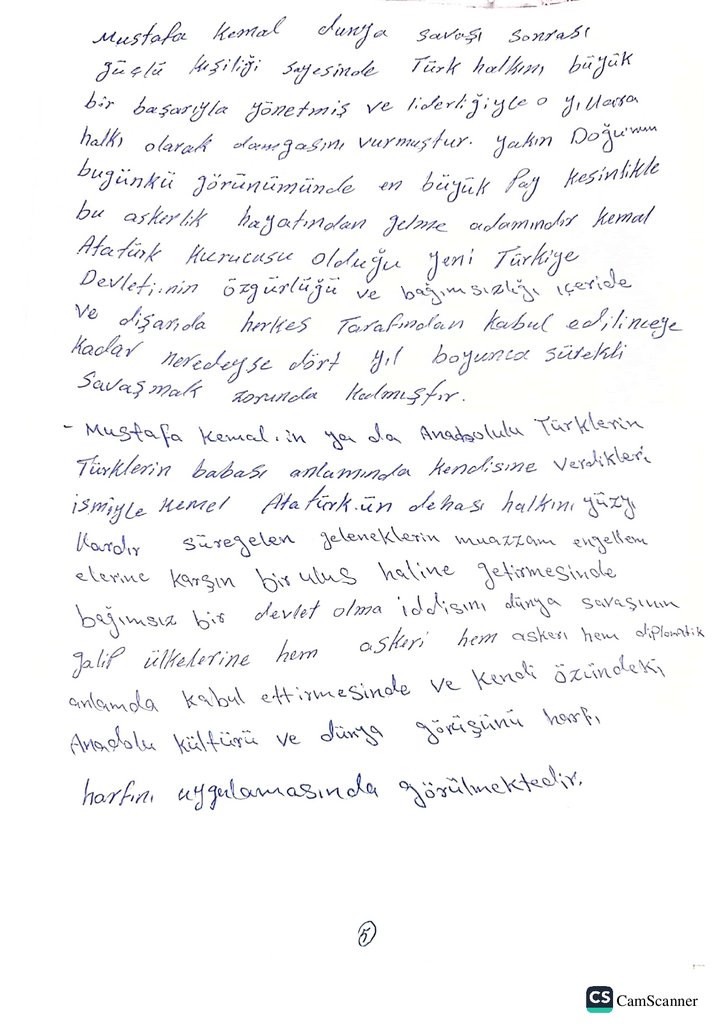 Mustafa Kemal dunya savaşı sonrası
güçlü kişiliği sayesinde Türk halkını büyük
bir başarıyla yönetmiş ve liderliğiyle o yıllara
halkı olarak damgasını vurmuştur. yakın Doğu'nun
bugünkü görünümünde en büyük Pay kesinlikle
bu askerlik hayatından gelme adamındır Kemal
Atatürk kurucusu olduğu yeni Türkiye
Devleti.nin özgürlüğü ve bağımsızlığı içeride
ve dişarıda herkes Tarafından kabul edilinceye
kadar neredeyse dört yıl boyunca sürekli
Savaşmak zorunda kalmıştır.
- Mustafa Kemal.in ya da Anadolulu Türklerin
Türklerin babası anlamında kendisine verdikleri
ismiyle Kemel Atatürk.ün dehası halkını yüzyı
llardır süregelen geleneklerin muazzam engellem
elerine karşın bir ulus haline getirmesinde
bağımsız bir devlet olma iddisını dünya savaşının
galip ülkelerine hem askeri hem askeri hem diplomatik
anlamda kabul ettirmesinde ve kendi özündeki
Anadolu kültürü ve dünya görüşünü harfi
harfını uygulamasında görülmektedir.
5
CS CamScanner